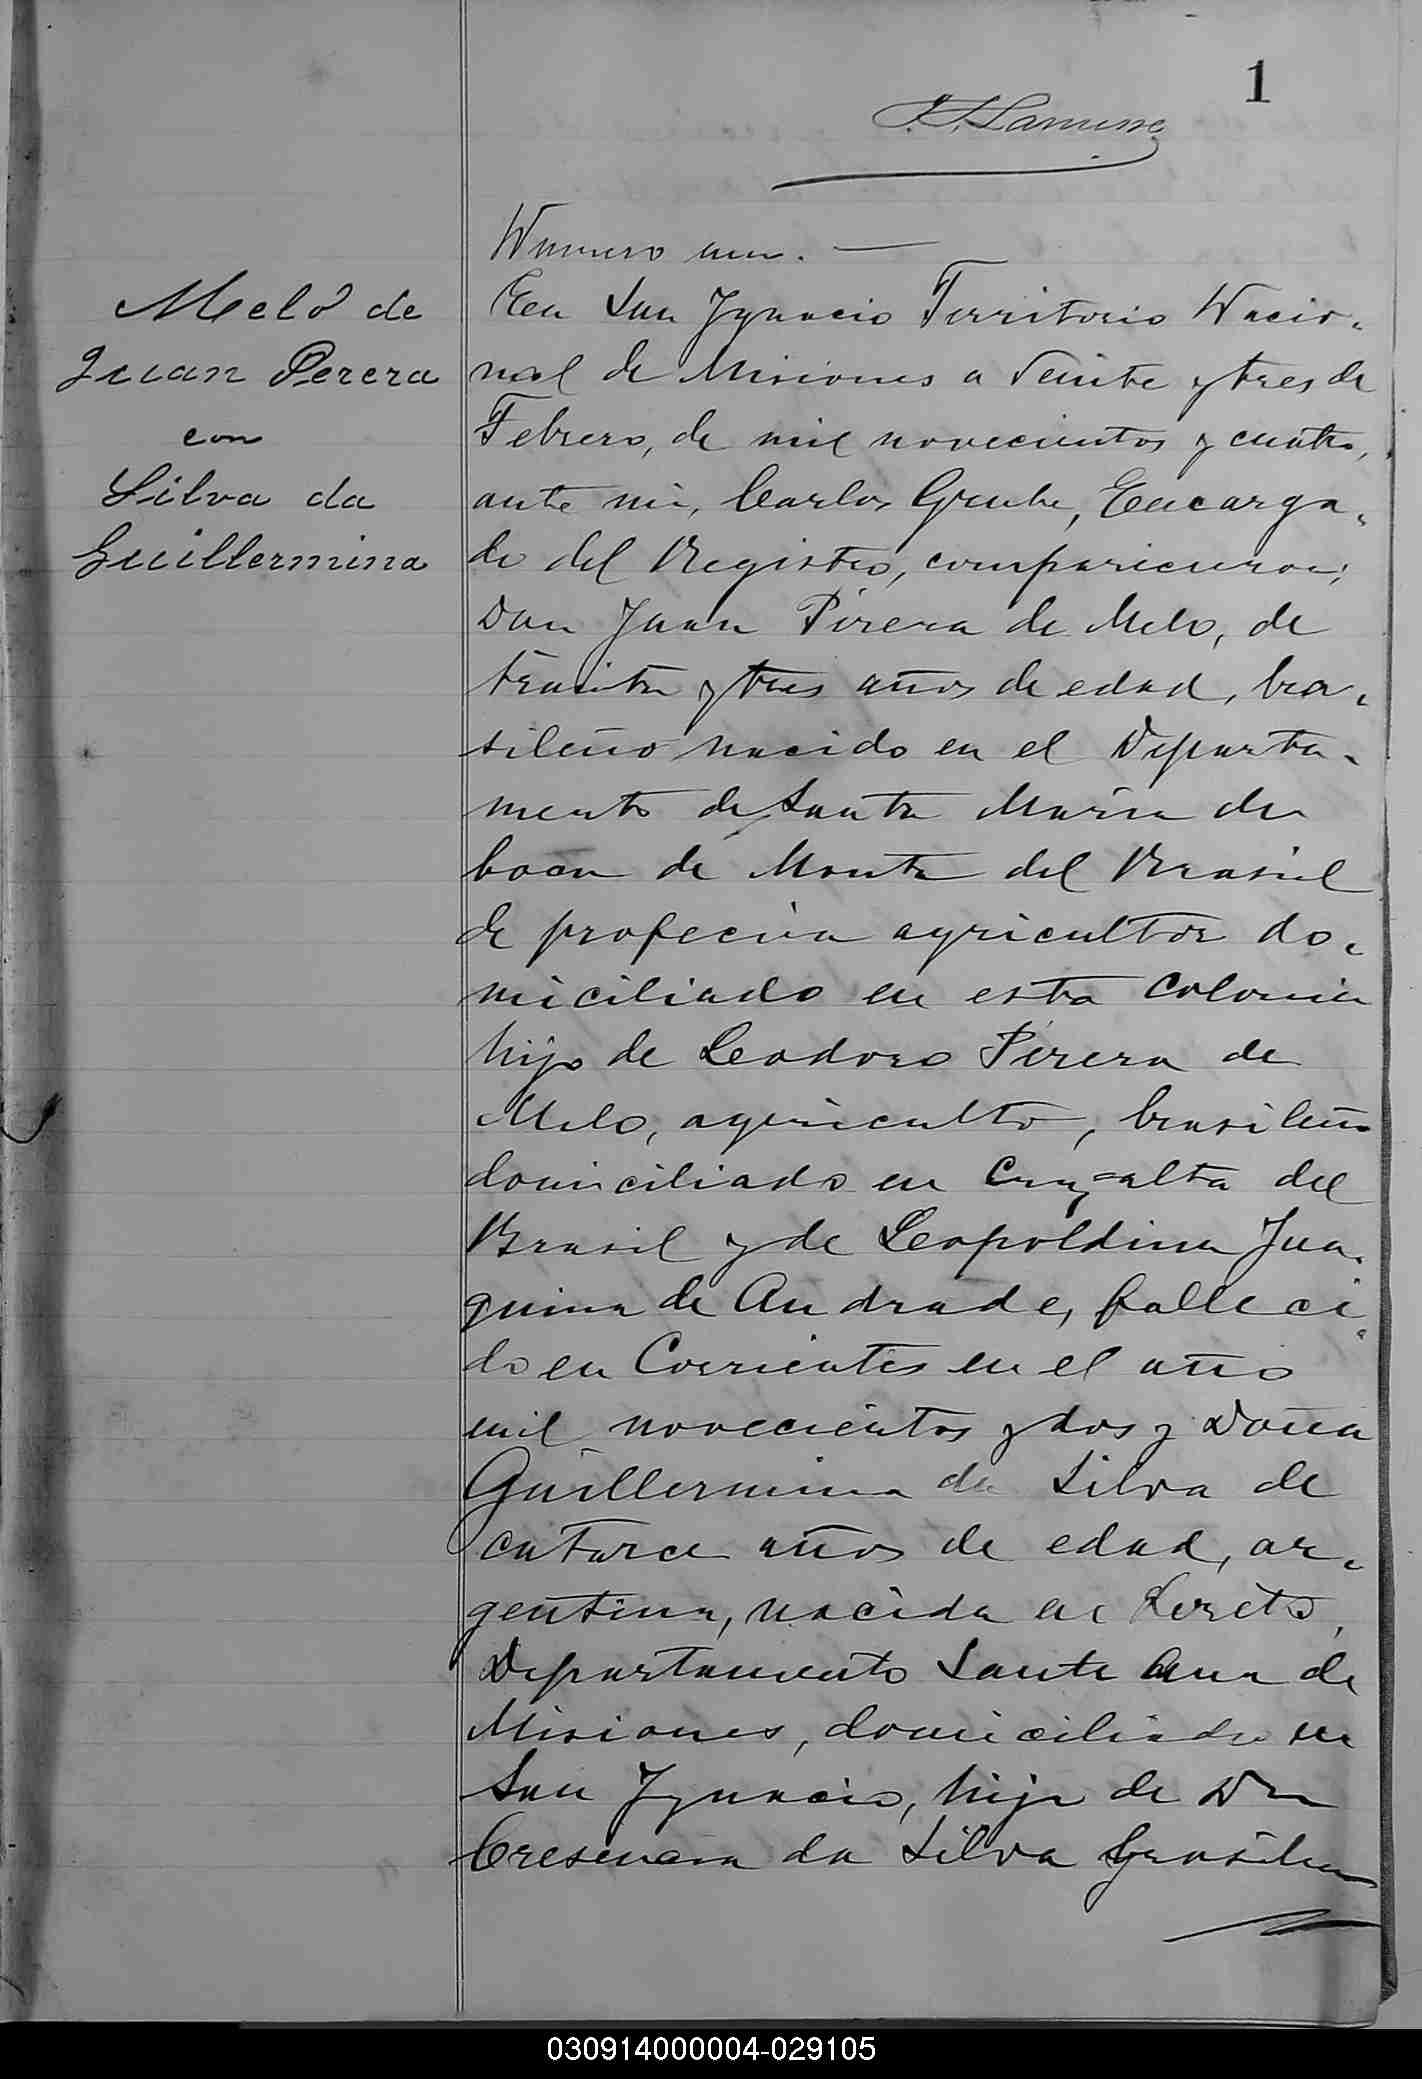 1
J. J. Lanusse
Numero uno.
Melo de
Juan Perera
con
Silva da
Guillermina
En San Ygnacio Territorio Nacio-
nal de Misiones a Veinte y tres de
Febrero, de mil novecientos y cuatro,
ante mi, Carlos Grube, Encarga-
do del Registro, comparicieron;
Don Juan Pirera de Melo, de
trainta y tres años de edad, bra-
sileño nacido en el Departa-
mento de Santa Maria de
boca de Monta del Brasil
de profecion agricultor do-
miciliado en esta Colonia
hijo de Leodoro Pirera de
Melo, agriculto, brasileño
domiciliado en Cruz=alta del
Brasil y de Leopoldina Jua-
quina de Andrade, falleci-
do en Corrientes en el año
mil novecientos y dos y Doña
Guillermina da Silva de
catorce años de edad, ar-
gentina, nacida en Loreto,
Departamento Santa Ana de
Misiones, domiciliada en
San Ygnacio, hija de Don
Cresencia da Silva brasilera
030914000004-029105